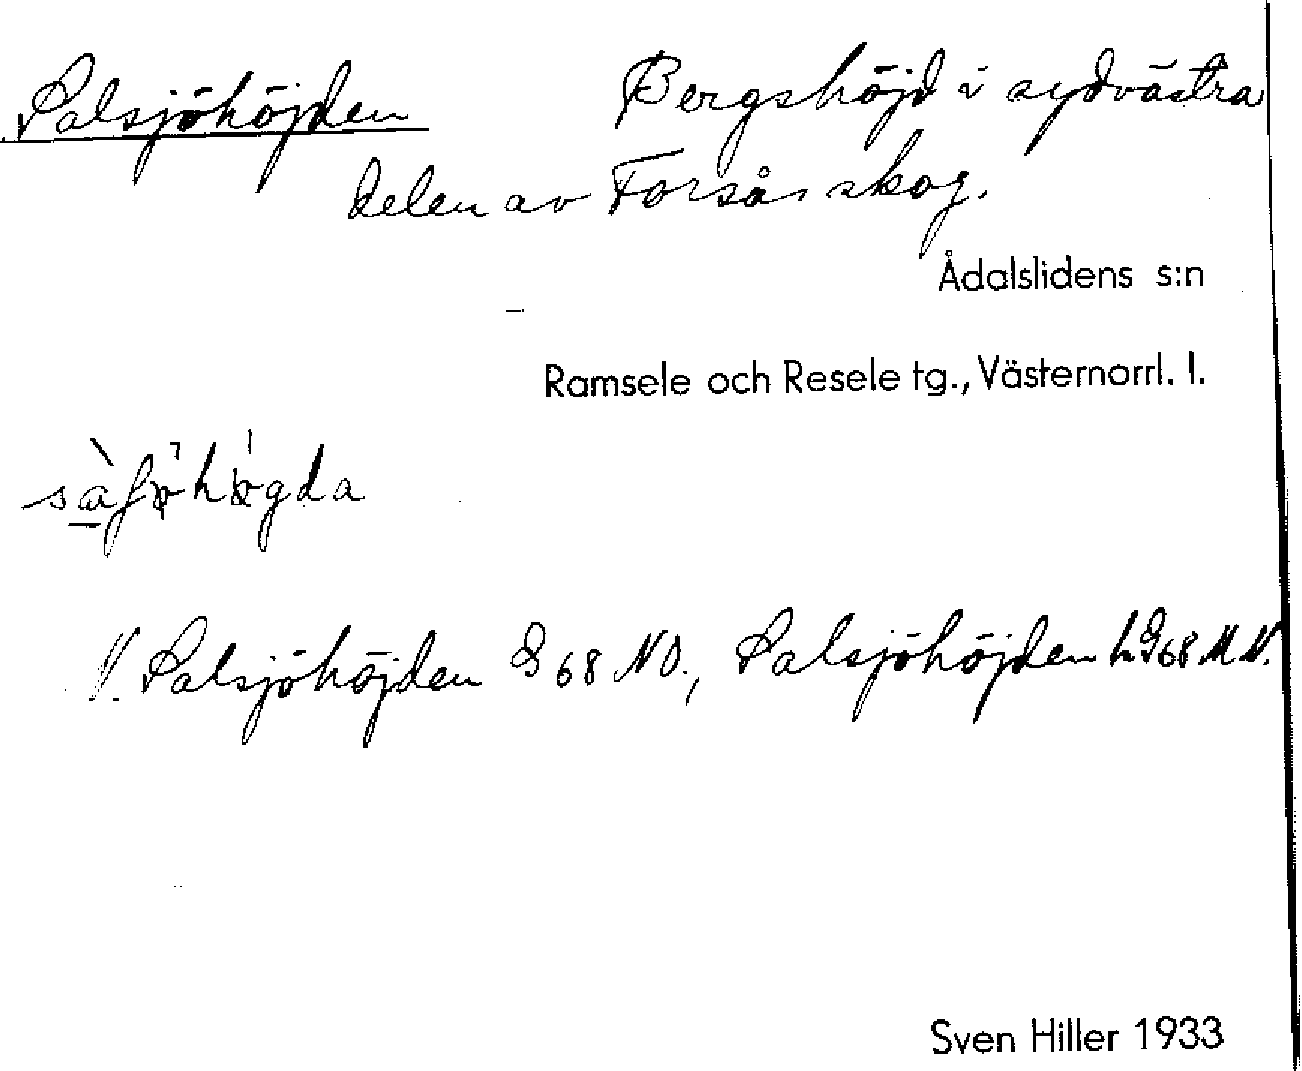 Salsjöhöjden Bergshöjd i sydvästra
delen av Forsås skog.
Ådalslidens s:n
Ramsele och Resele tg., Västernorrl. l.
V. Salsjöhöjden G 68 NO., Salsjöhöjden h G 68 NV.
Sven Hiller 1933